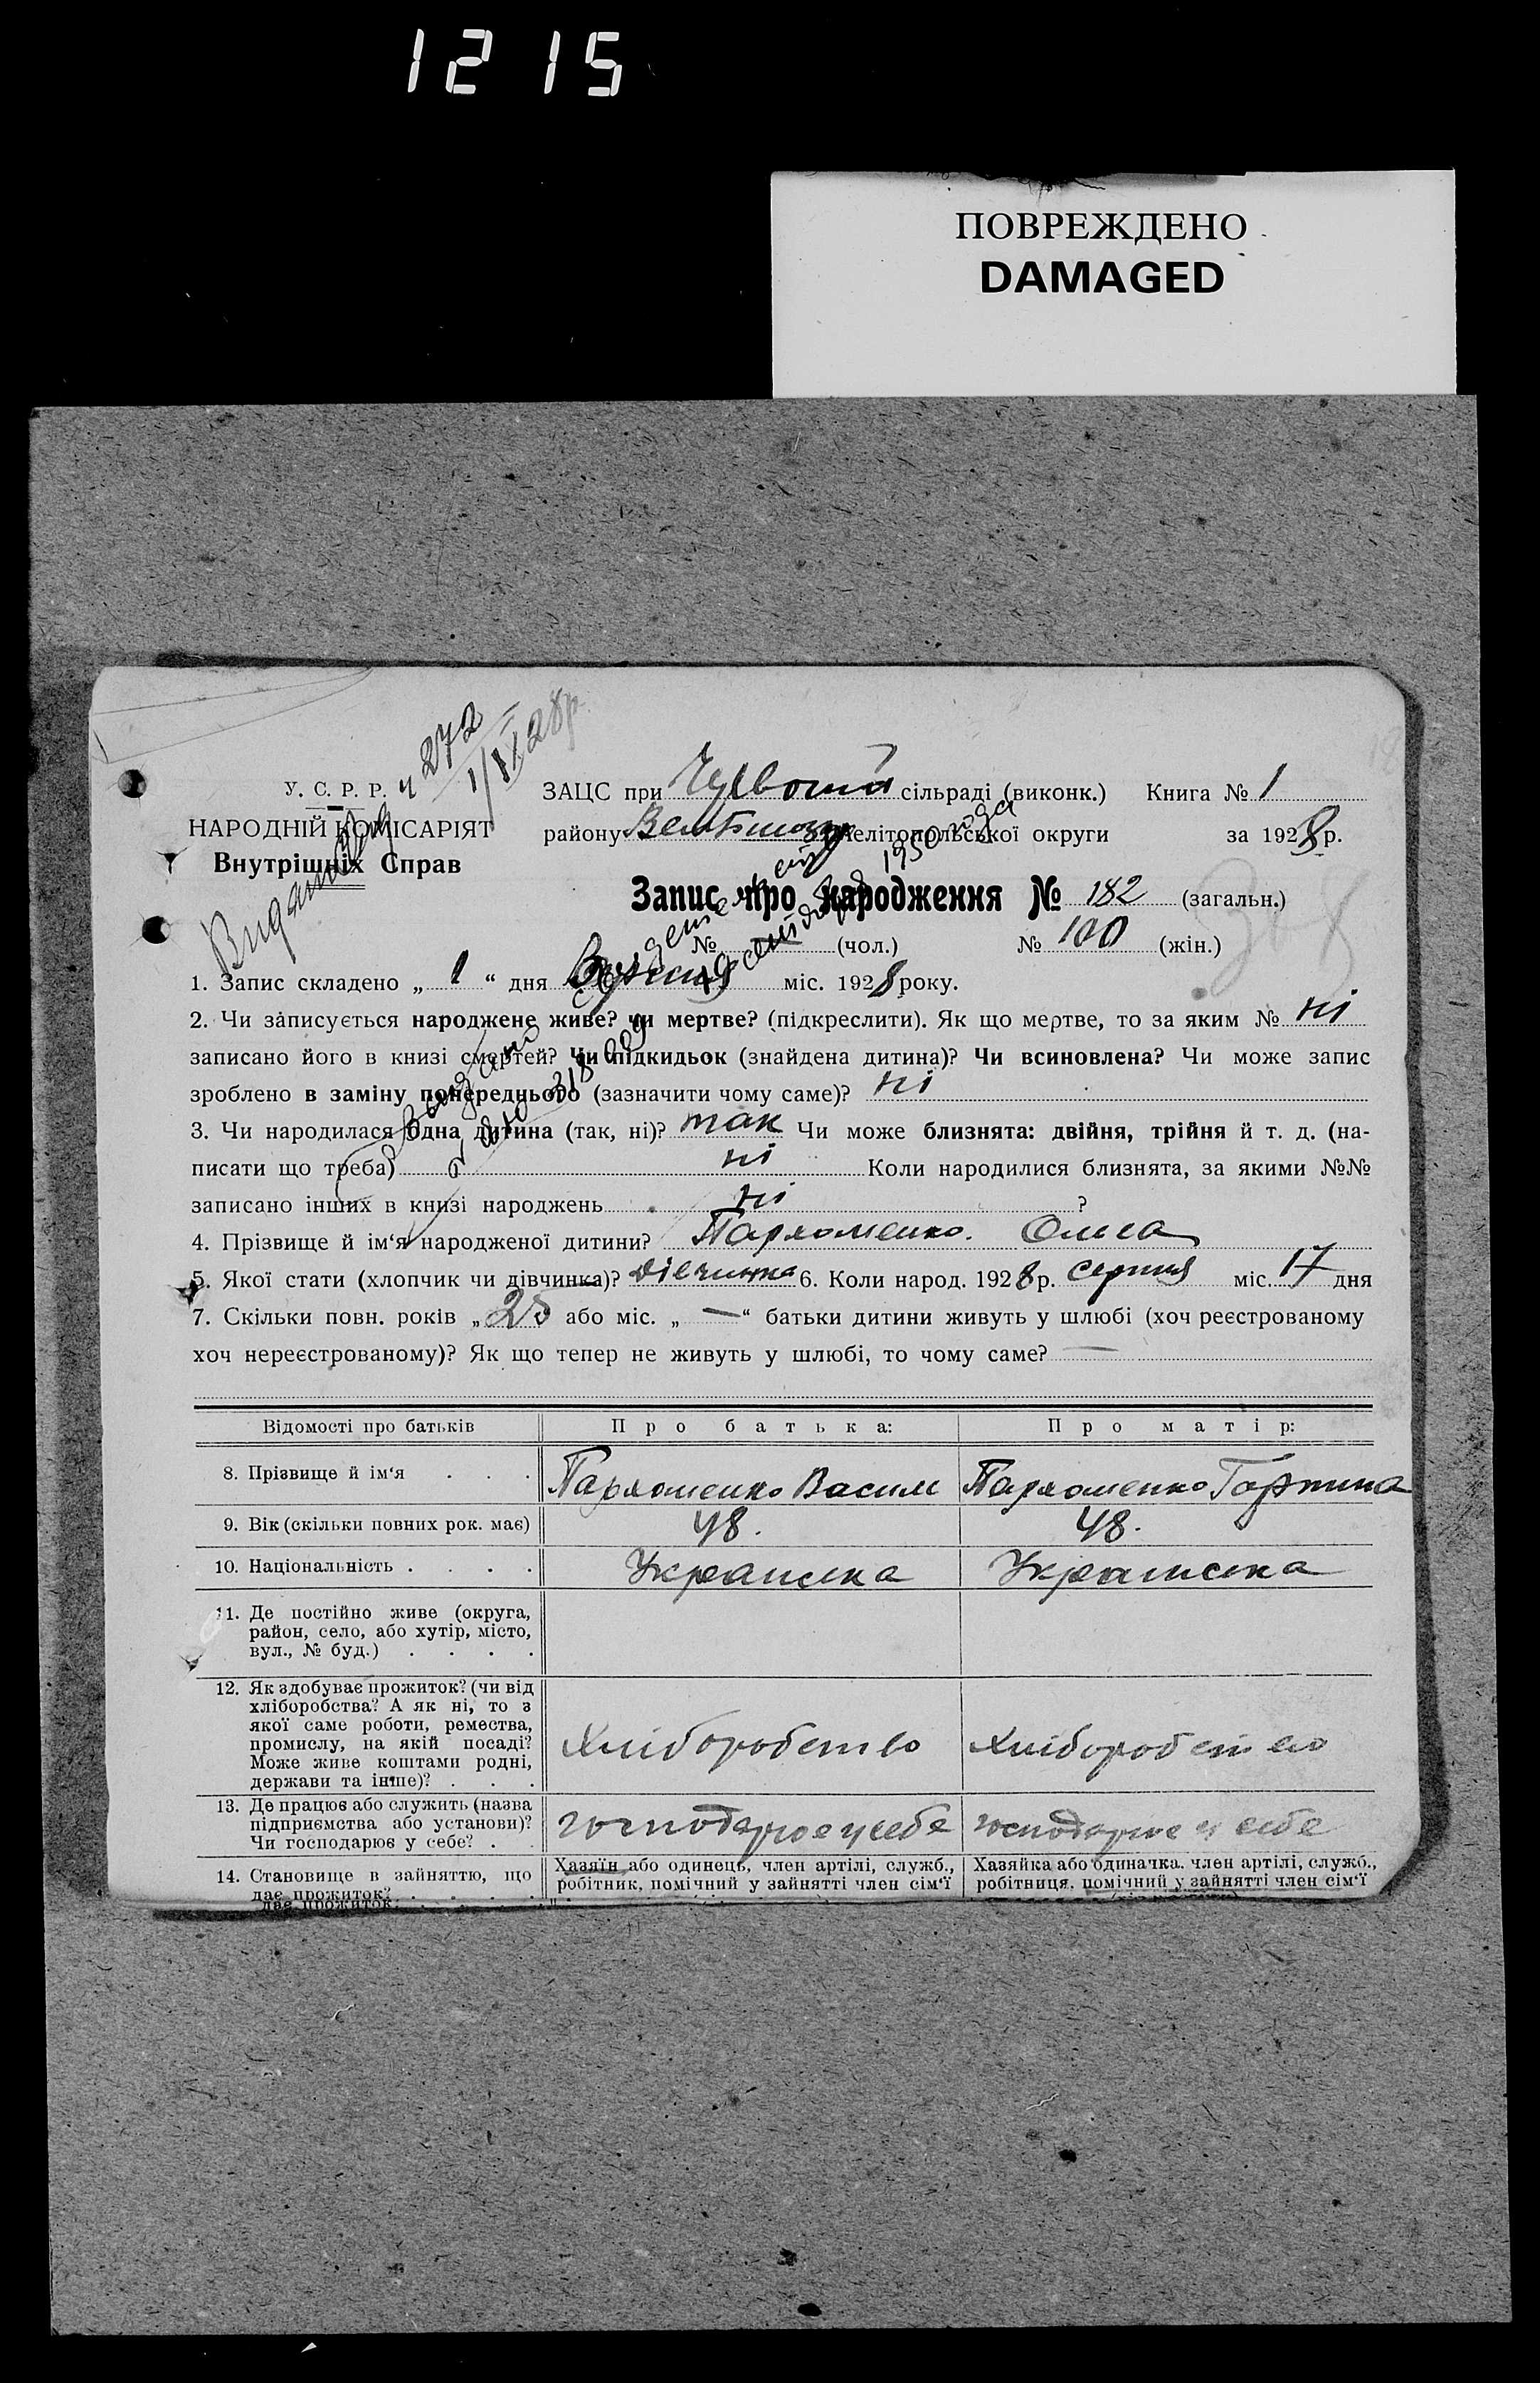 1215
ПОВРЕЖДЕНО
DAMAGED
ч 272
1/IX 28р.
У. С. Р. Р.
НАРОДНІЙ КОМІСАРІЯТ
Внутрішніх Справ
ЗАЦС при сільраді (виконк.) Книга № 1
району Мелітопольської округи за 1928 р.
Запис про народження № 182 (загальн.)
№ (чол.) № 100 (жін.)
1. Запис складено „ 1 “ дня міс. 1928 року.
2. Чи записується народжене живе? чи мертве? (підкреслити). Як що мертве, то за яким № ні
записано його в книзі смертей? Чи підкидьок (знайдена дитина)? Чи всиновлена? Чи може запис
зроблено в заміну попереднього (зазначити чому саме)? ні
3. Чи народилася одна дитина (так, ні)? так Чи може близнята: двійня, трійня й т. д. (на-
писати що треба) ні Коли народилися близнята, за якими №№
записано інших в книзі народжень ні ?
4. Прізвище й ім‘я народженої дитини? Пархоменко. Ольга
5. Якої стати (хлопчик чи дівчинка)? дівчинка 6. Коли народ. 1928 р. серпня міс. 17 дня
7. Скільки повн. років „ 25 або міс. „ — “ батьки дитини живуть у шлюбі (хоч реєстрованому
хоч нереєстрованому)? Як що тепер не живуть у шлюбі, то чому саме? —
Відомості про батьків Про батька: Про матір:
8. Прізвище й ім‘я . . . Пархоменко Василь Пархоменко
9. Вік (скільки повних рок. має) 48. 48.
10. Національність . . . . Українська Українська
11. Де постійно живе (округа,
район, село, або хутір, місто,
вул., № буд.) . . . .
12. Як здобуває прожиток? (чи від
хліборобства? А як ні, то з
якої саме роботи, ремества,
промислу, на якій посаді?
Може живе коштами родні,
держави та інше)? . . .
Хліборобство Хліборобство
13. Де працює або служить (назва
підприємства або установи)?
Чи господарює у себе? .
господарює у себе господарює у себе
14. Становище в зайняттю, що
дає прожиток? . . . .
Хазяїн або одинець, член артілі, служб.,
робітник, помічний у зайнятті член сім‘ї
Хазяйка або одиначка, член артілі, служб.,
робітниця, помічний у зайнятті член сім‘ї
Видана
19 1950 года